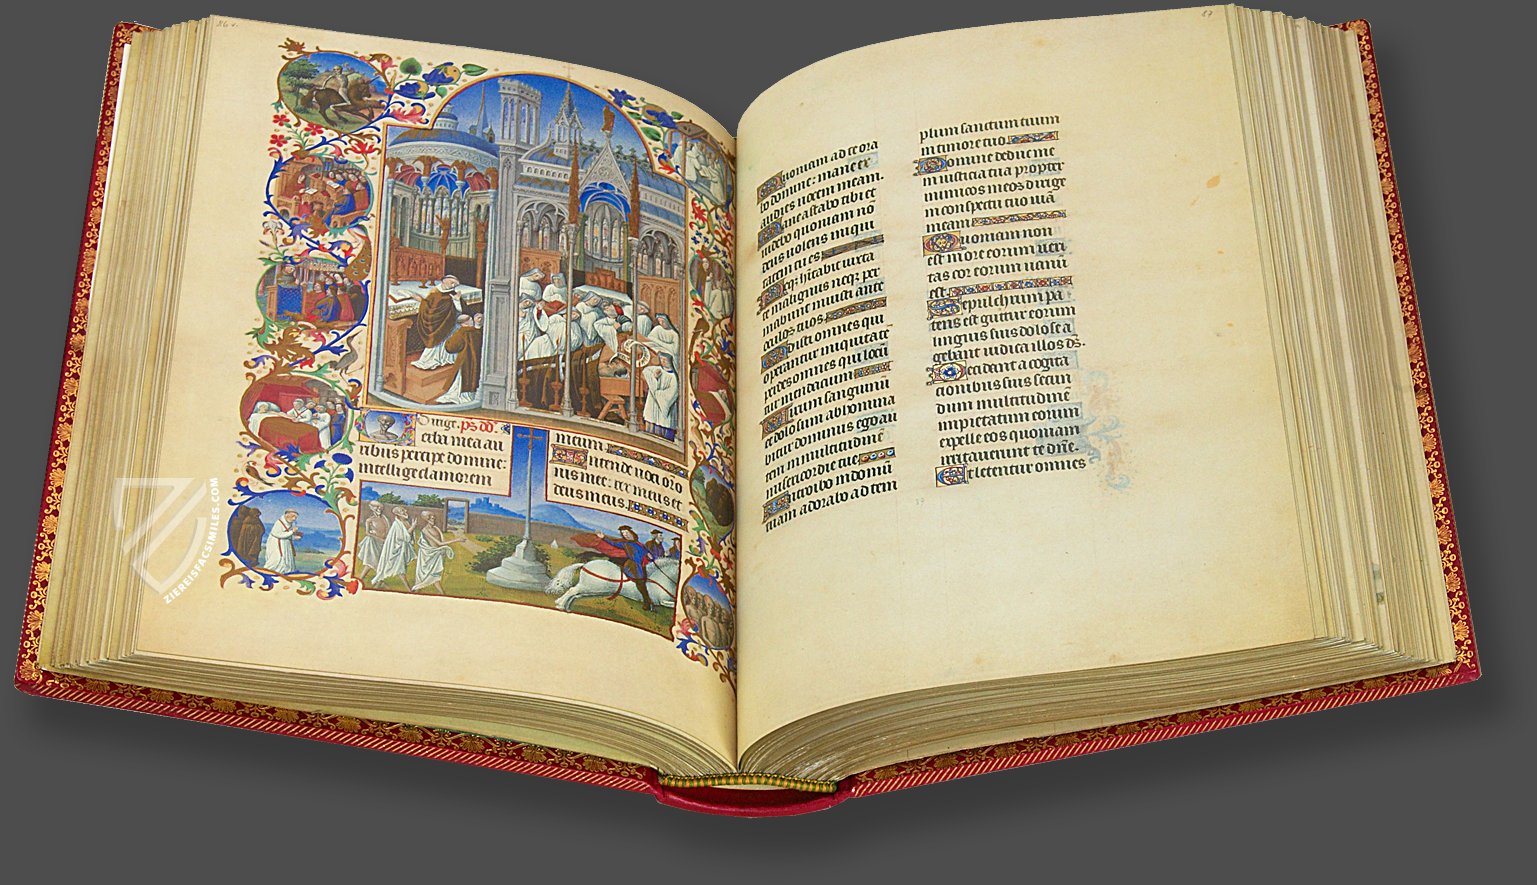 86 v.
Dirige. ps dd.
Verba mea au
ribus percipe domine:
intellige clamorem
meum.
Intende voci oro
nis mee: rex meus et
deus meus.
87
Quoniam ad te ora
bo domine: mane ex
audies vocem meam.
Mane astabo tibi et
videbo quoniam nō
deus volens iniqui
tatem tu es
Neq; hītabit iuxta
te malignus neq; per
manebunt iniusti ante
oculos tuos.
Odisti omnes qui
operantur iniquitatē
perdes omnes qui locū
tur mendacium
Virum sanguinū
et dolosum abhomina
bitur dominus ego au
tem in multitudinē
misericordie tue.
Introibo in domū
tuam adorabo ad tem
plum sanctum tuum
in timore tuo
Domine deduc me
in iusticia tua propter
inimicos meos dirige
in conspectu tuo viā
meam
Quoniam non
est in ore eorum veri
tas cor eorum vanū
est.
Sepulchrum pa
tens est guttur eorum
linguis suis dolose a
gebant iudica illos ds.
Decidant a cogita
tionibus suis secun
dum multitudinē
impietatum eorum
expelle eos quoniam
irritaverunt te dnē.
Et letentur omnes
ZIEREISFACSIMILES.COM